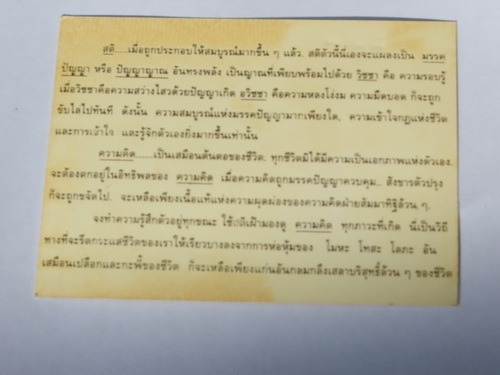 สติ.....เมื่อถูกประกอบให้สมบูรณ์มากขึ้น ๆ แล้ว. สติตัวนี้นี่เองจะแผลงเป็น มรรค
ปัญญา หรือ ปัญญาญาณ อันทรงพลัง เป็นญาณที่เพียบพร้อมไปด้วย วิชชา คือ ความรอบรู้
เมื่อวิชชาคือความสว่างไสวด้วยปัญญาเกิด อวิชชา คือความหลงโง่งม ความมืดบอด ก็จะถูก
ขับไล่ไปทันที ดังนั้น ความสมบูรณ์แห่งมรรคปัญญามากเพียงใด, ความเข้าใจกฎแห่งชีวิต
และการเข้าใจ และรู้จักตัวเองยิ่งมากขึ้นเท่านั้น
ความคิด.....เป็นเสมือนต้นตอของชีวิต. ทุกชีวิตมิได้มีความเป็นเอกภาพแห่งตัวเอง.
จะต้องตกอยู่ในอิทธิพลของ ความคิด เมื่อความคิดถูกมรรคปัญญาควบคุม.. สังขารตัวปรุง
ก็จะถูกขจัดไป. จะเหลือเพียงเนื้อแท้แห่งความผุดผ่องของความคิดฝ่ายสัมมาทิฐิล้วน ๆ.
จงทำความรู้สึกตัวอยู่ทุกขณะ ใช้สติเฝ้ามองดู ความคิด ทุกภาวะที่เกิด นี่เป็นวิถี
ทางที่จะรีดกระแสชีวิตของเราให้เรียวบางลงจากการห่อหุ้มของ โมหะ โทสะ โลภะ อัน
เสมือนเปลือกและกะพี้ของชีวิต ก็จะเหลือเพียงแก่นอันกลมกลึงเสลาบริสุทธิ์ล้วน ๆ ของชีวิต